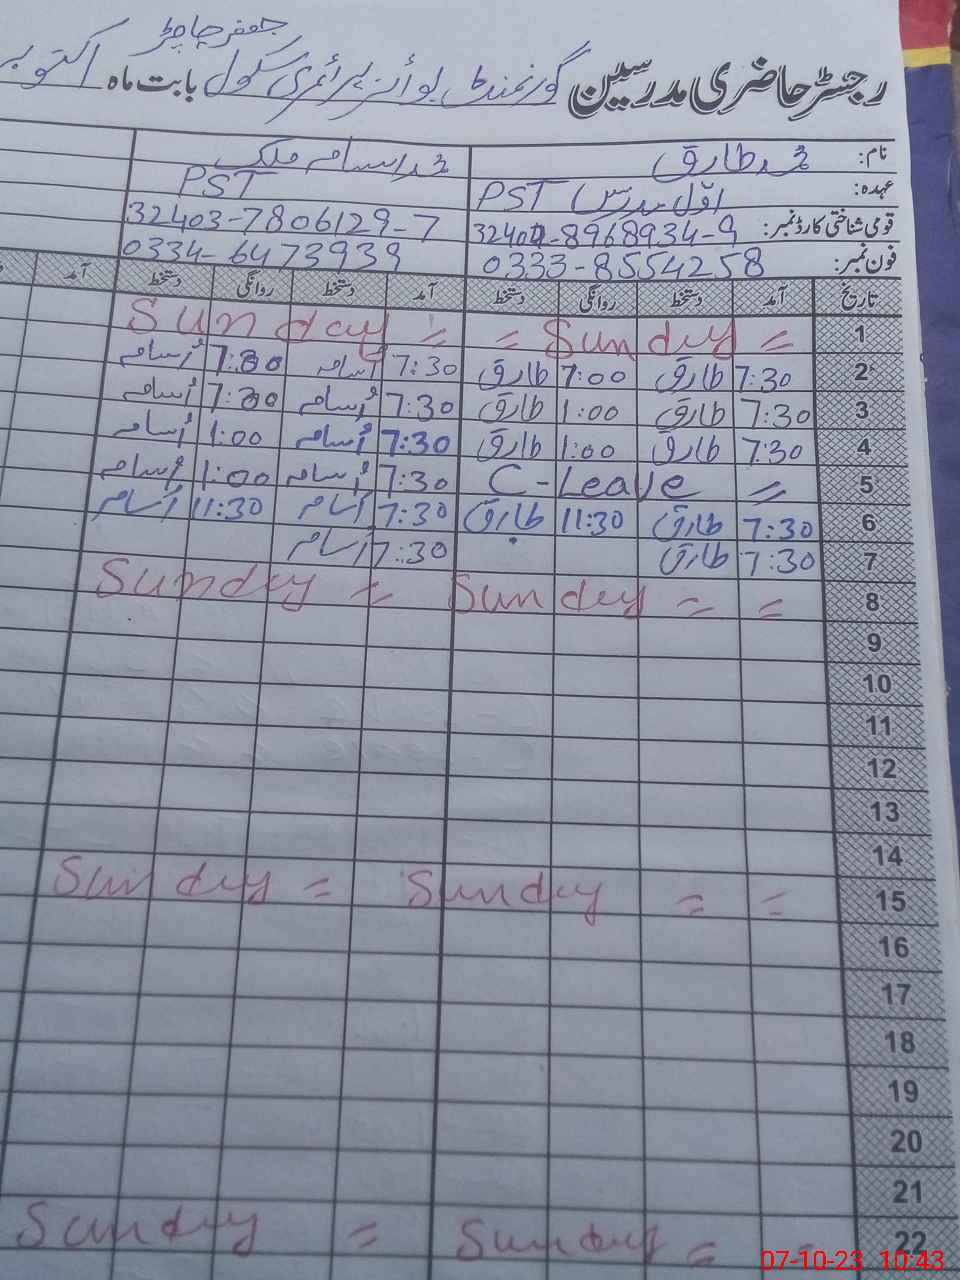 جعفر چاچڑ
رجسٹر حاضری مدرسین گورنمنٹ بوائز پرائمری سکول بابت ماہ اکتوبر
نام: محمد طارق محمد اسامہ ملک
عہدہ: اوّل مدرس PST PST
قومی شناختی کارڈ نمبر: 32404-8968934-9 32403-7806129-7
فون نمبر: 0333-8554258 0334-6473939
تاریخ آمد دستخط روانگی دستخط آمد دستخط روانگی دستخط آمد
1 = Sunday = = Sunday
2 7:30 طارق 7:00 طارق 7:30 اُسامہ 7:30 اُسامہ
3 7:30 طارق 1:00 طارق 7:30 اُسامہ 7:30 اُسامہ
4 7:30 طارق 1:00 طارق 7:30 اُسامہ 1:00 اُسامہ
5 C-Leave = 7:30 اُسامہ 1:00 اُسامہ
6 7:30 طارق 11:30 طارق 7:30 اُسامہ 11:30 اُسامہ
7 7:30 طارق 7:30 اُسامہ
8 Sunday = = Sunday =
9
10
11
12
13
14
15 Sunday = = Sunday =
16
17
18
19
20
21
22 Sunday = = Sunday =
07-10-23 10:43